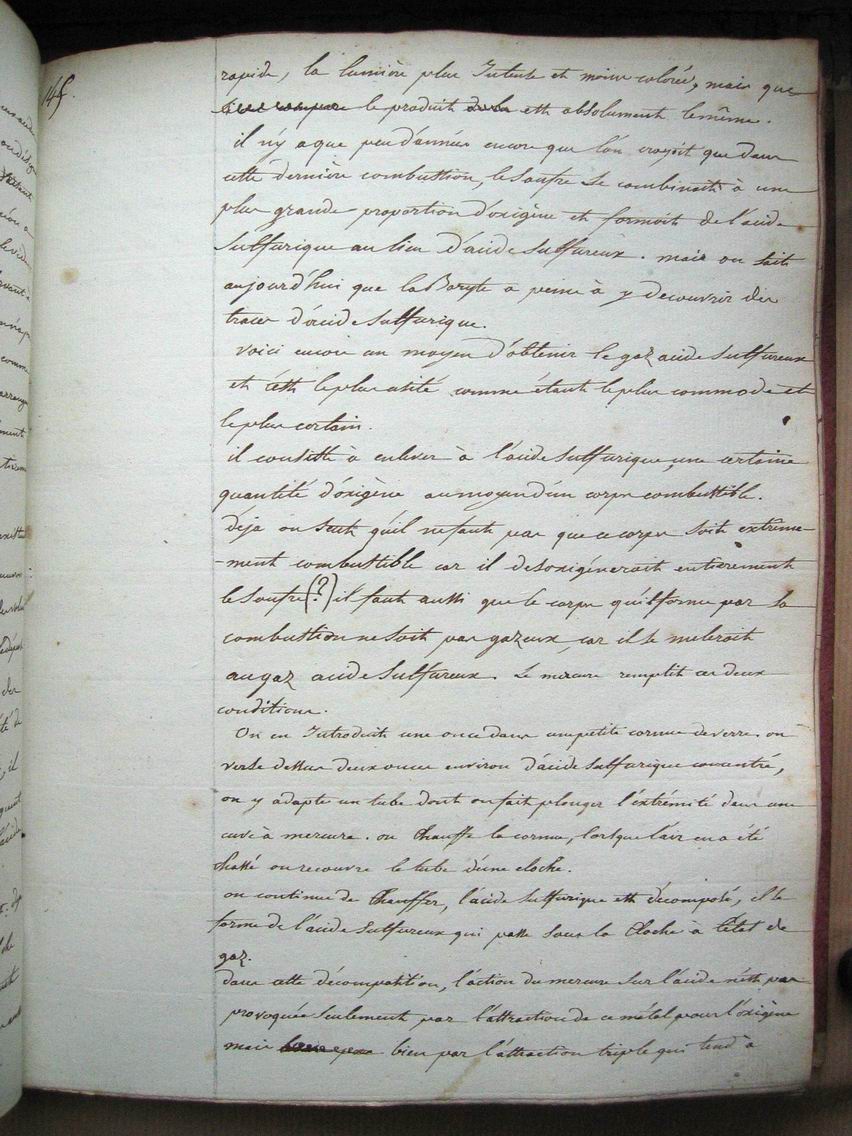 145.
rapide, la lumière plus Intense et moins colorée, mais que
le produit est absolument le même.
il n'y a que peu d'années encore que l'on croyoit que dans
cette dernière combustion, le Soufre se combinoit à une
plus grande proportion d'oxigène et formoit de l'acide
Sulfurique au lieu d'acide Sulfureux. mais on sait
aujourd'hui que la Baryte a peine à y decouvrir des
traces d'acide Sulfurique.
voici encore un moyen d'obtenir le gaz acide Sulfureux
et c'est le plus usité comme étant le plus commode et
le plus certain.
il consiste à enlever à l'acide Sulfurique, une certaine
quantité d'oxigène au moyen d'un corps combustible.
déja on sent qu'il ne faut pas que ce corps soit extrême-
-ment combustible car il desoxigèneroit entierement
le Soufre (?) il faut aussi que le corps qu'il forme par sa
combustion ne soit pas gazeux, car il se meleroit
au gaz acide Sulfureux. Le mercure remplit ces deux
conditions.
On en Introduit une once dans une petite cornue de verre. on
verse dessus deux onces environ d'acide Sulfurique concentré,
on y adapte un tube dont on fait plonger l'extrémité dans une
cuve à mercure. on Chauffe la cornue, lorsque l'air en a été
chassé on recouvre le tube d'une cloche.
on continue de Chauffer, l'acide Sulfurique est décomposé, il se
forme de l'acide Sulfureux qui passe sous la Cloche à l'état de
gaz.
dans cette décomposition, l'action du mercure sur l'acide n'est pas
provoquée Seulement par l'attraction de ce métal pour l'oxigène
mais bien par l'attraction triple qui tend à